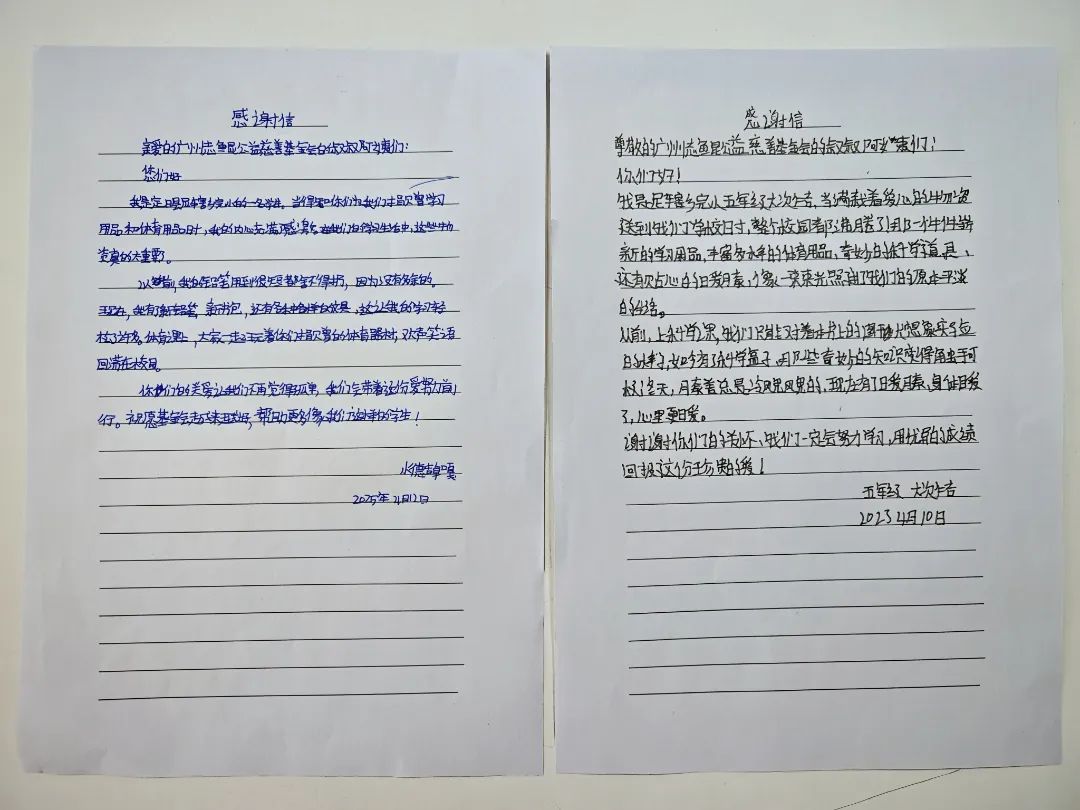 感谢信
亲爱的广州志鱼昆公益慈善基金会的叔叔阿姨们:
您们好
我是定日县尼辖乡完小的一名学生。当得知你们为我们捐赠学习
用品和体育用品时,我的内心充满感激。在我们的学习生活中,这些物
资真的太重要了。
以前,我的铅笔用到很短都舍不得扔,因为没有多余的。
现在,我有了新铅笔,新书包,还有各种各样的文具,这让我的学习轻
松了许多。体育课上,大家一起玩着你们捐赠的体育器材,欢声笑语
回荡在校园。
你们的关爱让我们不再觉得孤单,我们会带着这份爱努力前
行。祝愿基金会越来越好,帮助更多像我们这样的学生!
水德吉卓嘎
2025年4月12日
感谢信
尊敬的广州志鱼昆公益慈善基金会的叔叔阿姨们:
你们好!
我是尼辖乡完小五年级大次吉。当满载着爱心的物资
送到我们学校时,整个校园都沸腾了,那一件件崭
新的学习用品,丰富多样的体育用品,奇妙的科学道具,
还有贴心的暖,像一束束光照耀了我们的原本平淡
的生活。
从前,上科学课,我们只能对着书上的图片想象实验
的样子,如今有了科学盒子,那些奇妙的知识变得触手可
及!冬天,总是冷飕飕的,现在有了暖,身体暖
了,心里更暖。
谢谢你们的关怀、我们一定会努力学习,用优异的成绩
回报这份珍贵的爱!
五年级 大次吉
2023 4月10日